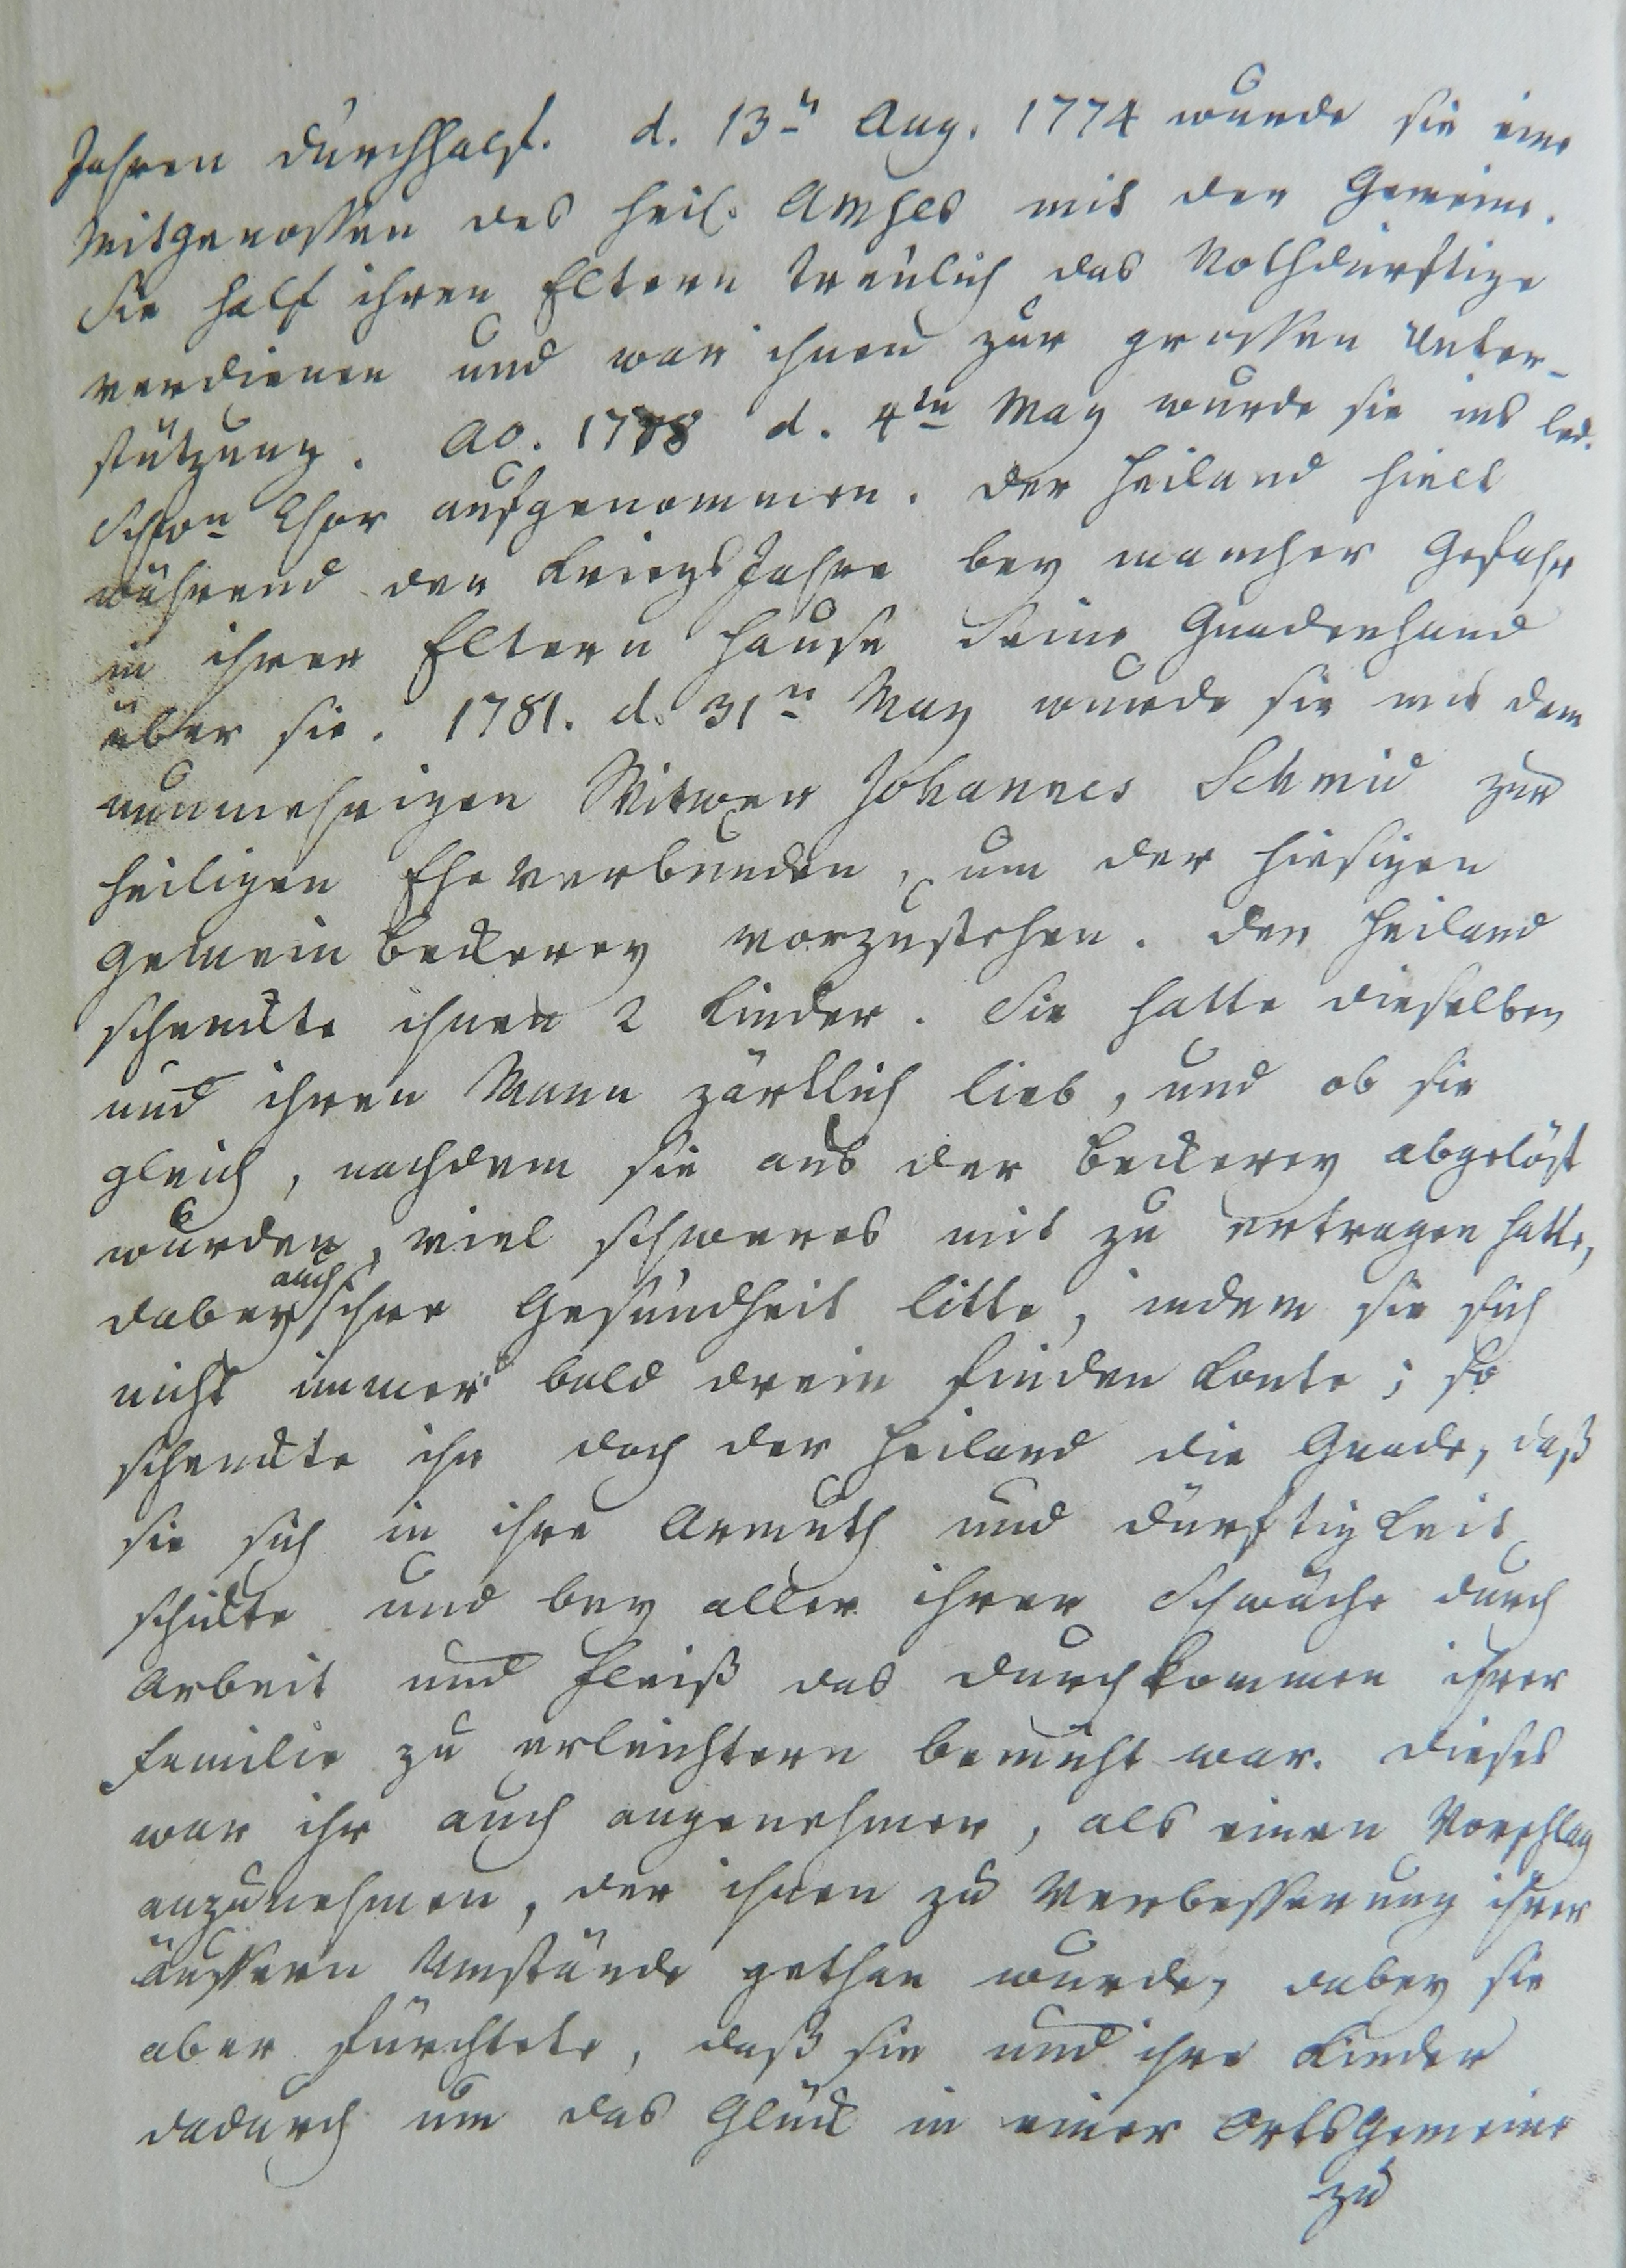 Jahren durchhalf. d. 13ⁿ Aug. 1774 wurde sie eine
Mitgenossen des heil. Amhls mit der Gemeine.
Sie half ihren Eltern treulich das Nothdürftige
verdienen und war ihnen zur grossen Unter-
stützung. Ao. 1778 d. 4ten May wurde sie ins led.
Schwn Chor aufgenommen. Der Heiland hielt
während der KriegsJahre bey mancher Gefahr
in ihrer Eltern Hause Seine Gnadenhand
über sie. 1781. d. 31n May wurde sie mit dem
nunmehrigen Witwer Johannes Schmid zur
heiligen Ehe verbunden, um der hiesigen
Gemein Beckerey vorzustehen. Der Heiland
schenckte ihnen 2 Kinder. Sie hatte dieselben
und ihren Mann zärtlich lieb, und ob sie
gleich, nachdem sie aus der Beckerey abgelöst
wurden, viel schweres mit zu ertragen hatte,
dabey auch ihre Gesundheit litte, indem sie sich
nicht immer bald drein finden konte; so
schenckte ihr doch der Heiland die Gnade, daß
sie sich in ihre Armuth und Dürftigkeit
schickte und bey aller ihrer Schwäche durch
Arbeit und Fleiß das Durchkommen ihrer
Familie zu erleichtern bemüht war. Dieses
war ihr auch angenehmer, als einen Vorschlag
anzunehmen, der ihnen zu Verbesserung ihrer
äussern Umstände gethan wurde, dabey sie
aber fürchtete, daß sie und ihre Kinder
dadurch um das Glück in einer OrtsGemeine
zu